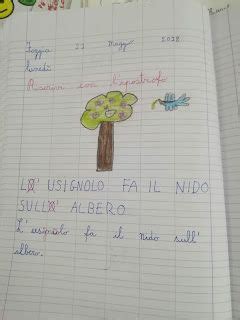 Foggia 21 Maggio 2018
lunedì
Riscrivo con l'apostrofo
LO' USIGNOLO FA IL NIDO
SULLO' ALBERO
L'usignolo fa il nido sull'
albero.